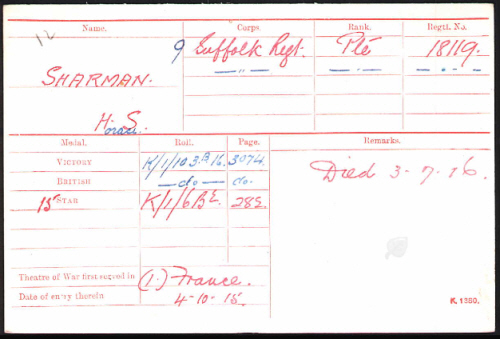 12
Name. Corps. Rank. Regtl. No.
9 Suffolk Regt. Pte 18119.
SHARMAN. — " — — " — — " —
H. S.
Medal. Roll. Page. Remarks.
VICTORY K/1/103.B16. 3074. Died 3-7-16.
BRITISH — do — do.
15 STAR K/1/6BE. 282.
Theatre of War first served in (1.) France.
Date of entry therein 4-10-15.
K. 1380.